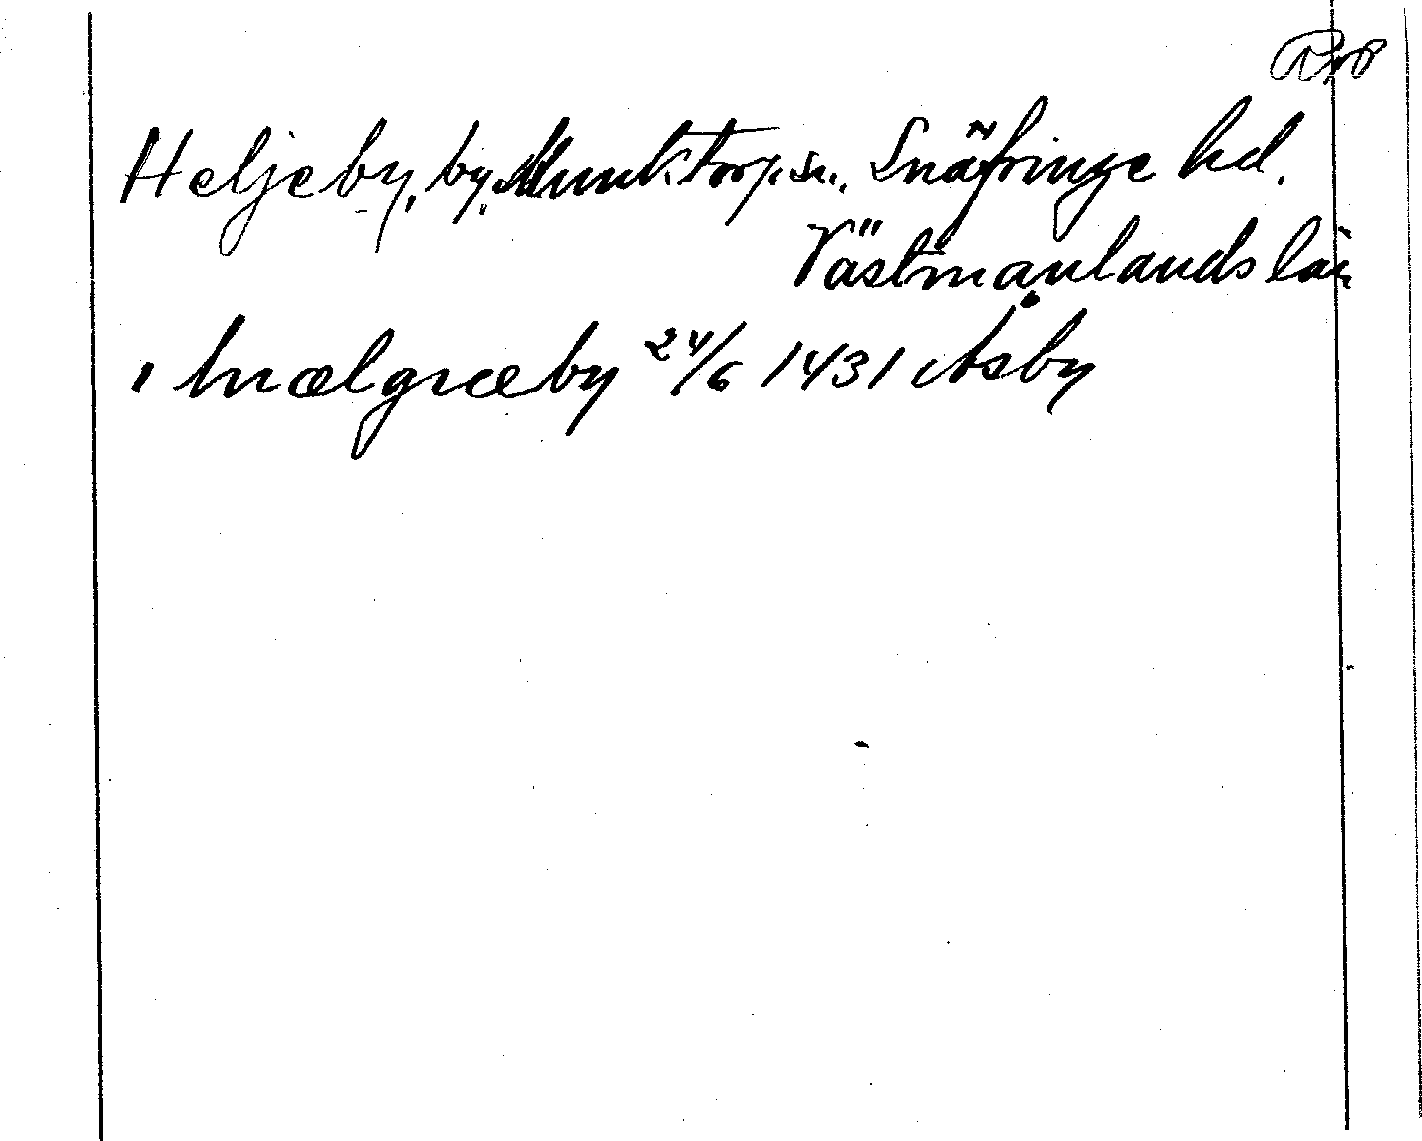 Heljeby, by, Munktorps sn., Snäfringe hd.
Västmanlands län
i hwælgnæby 24/6 1431 Åsby